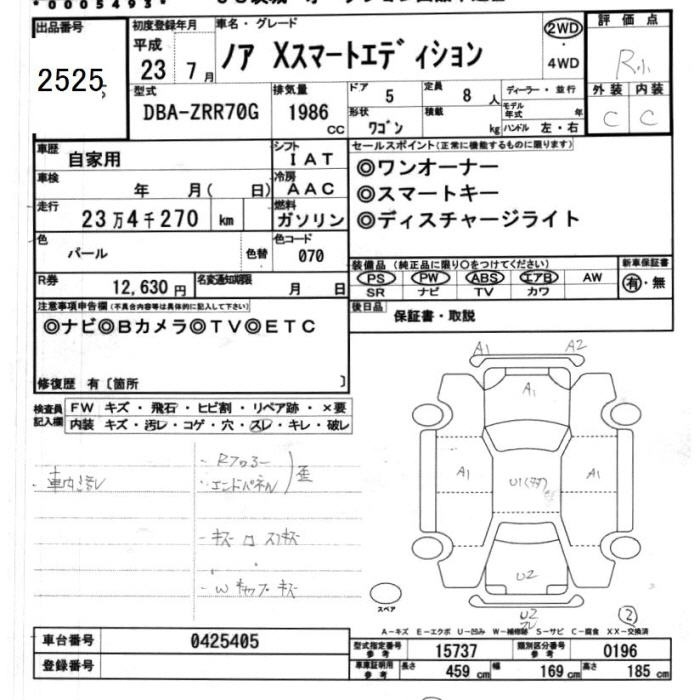 *0005493*
出品番号
2525
初度登録年月
平成
23 7 月
車名・グレード
ノア XスマートエディションN
2WD
・
4WD
評価点
R小
外装 内装
C C
型式
DBA-ZRR70G
排気量
1986 CC
ドア 5
定員 8 人
ディーラー・並行
形状 ワゴン
積載 kg
モデル年式 年
ハンドル 左・右
車歴
自家用
シフト
IAT
車検
年 月( 日)
冷房
AAC
走行
23万4千270 km
燃料
ガソリン
色
パール
色替
色コード
070
R券
12,630 円
名変通知期限
月 日
セールスポイント(正常に機能するものに限ります)
◎ワンオーナー
◎スマートキー
◎ディスチャージライト
装備品 (純正品に限り○をつけてください)
PS PW ABS エアB AW
SR ナビ TV カワ
新車保証書
有・無
後日品
保証書・取説
注意事項申告欄 (不具合内容等は具体的に記入して下さい)
◎ナビ◎Bカメラ◎TV◎ETC
修復歴 有〔箇所 〕
検査員記入欄
FW キズ・飛石・ヒビ割・リペア跡・×要
内装 キズ・汚レ・コゲ・穴・スレ・キレ・破レ
車内汚レ
・Rフロアー
・エンドパネル
歪
A1 A2
A1
A1 A1
U2
U2
②
スペア
A-キズ E-エクボ U-凹み W-補修跡 S-サビ C-腐食 XX-交換済
車台番号
0425405
登録番号
型式指定番号 参考 15737
類別区分番号 参考 0196
車庫証明用 参考
長さ 459 cm
幅 169 cm
高さ 185 cm